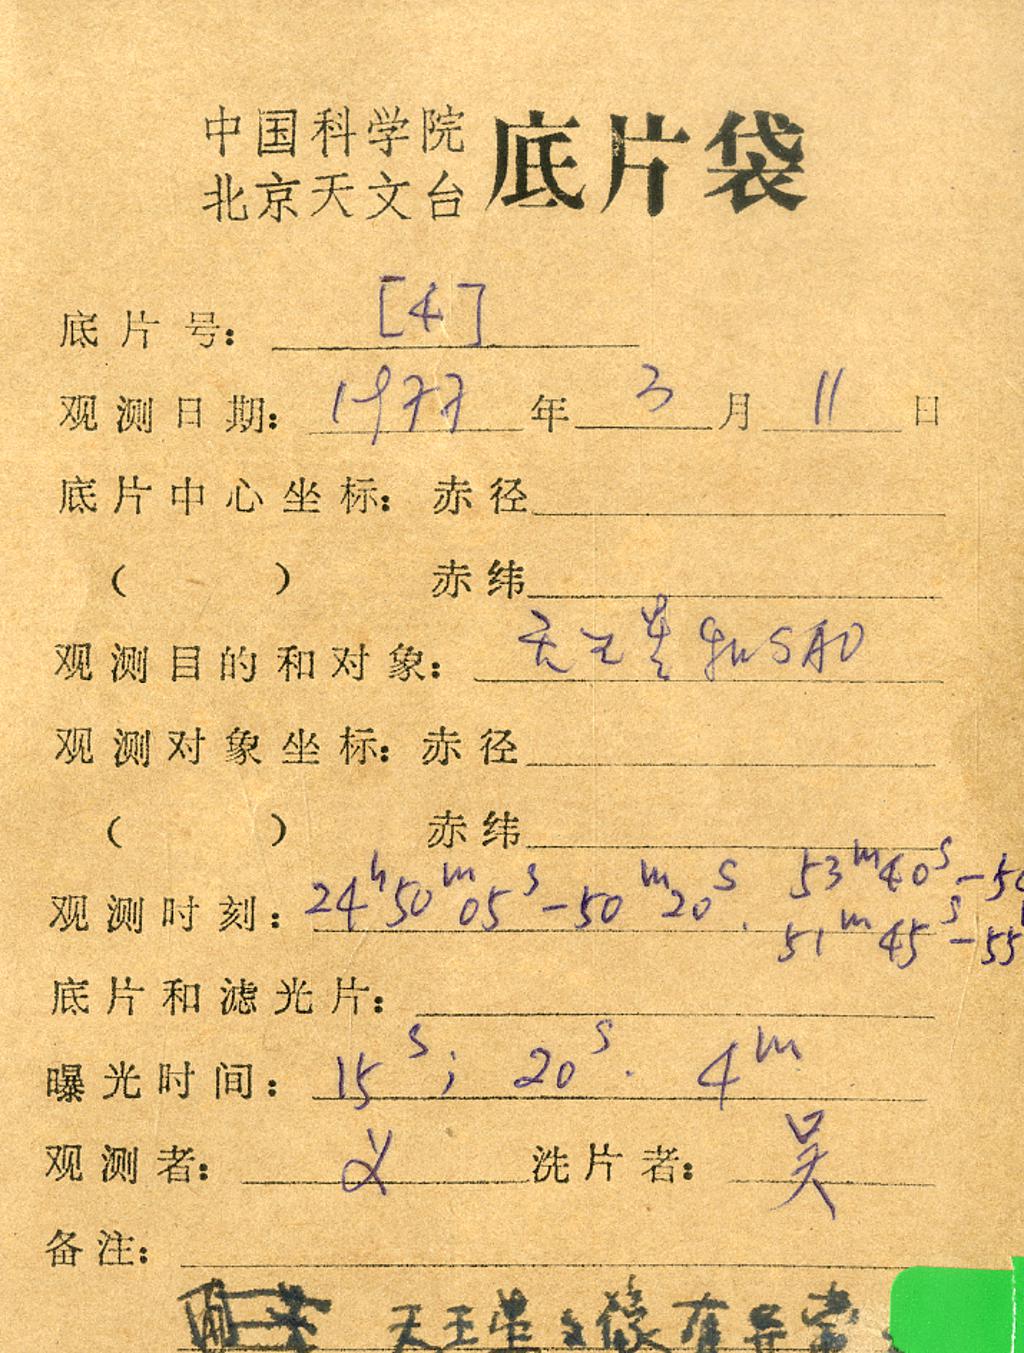 中国科学院
北京天文台 底片袋
底片号： [4]
观测日期： 1977 年 3 月 11 日
底片中心坐标： 赤径
（ ） 赤纬
观测目的和对象： 天王星 和SAO
观测对象坐标： 赤径
（ ） 赤纬
53m40s-50
观测时刻： 24h50m05s-50m20s.
51m45s-55
底片和滤光片：
曝光时间： 15s; 20s. 4m
观测者： 洗片者： 吴
备注：
天王星 像有异常